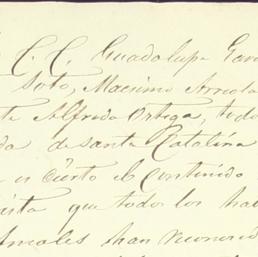 C. C. Guadalupe Gar
Soto, Macsimo Arreola
te Alfredo Ortega, todo
da de santa Catalína
a es cierto el contenido
ista que todos los ha
Amales han reconocid